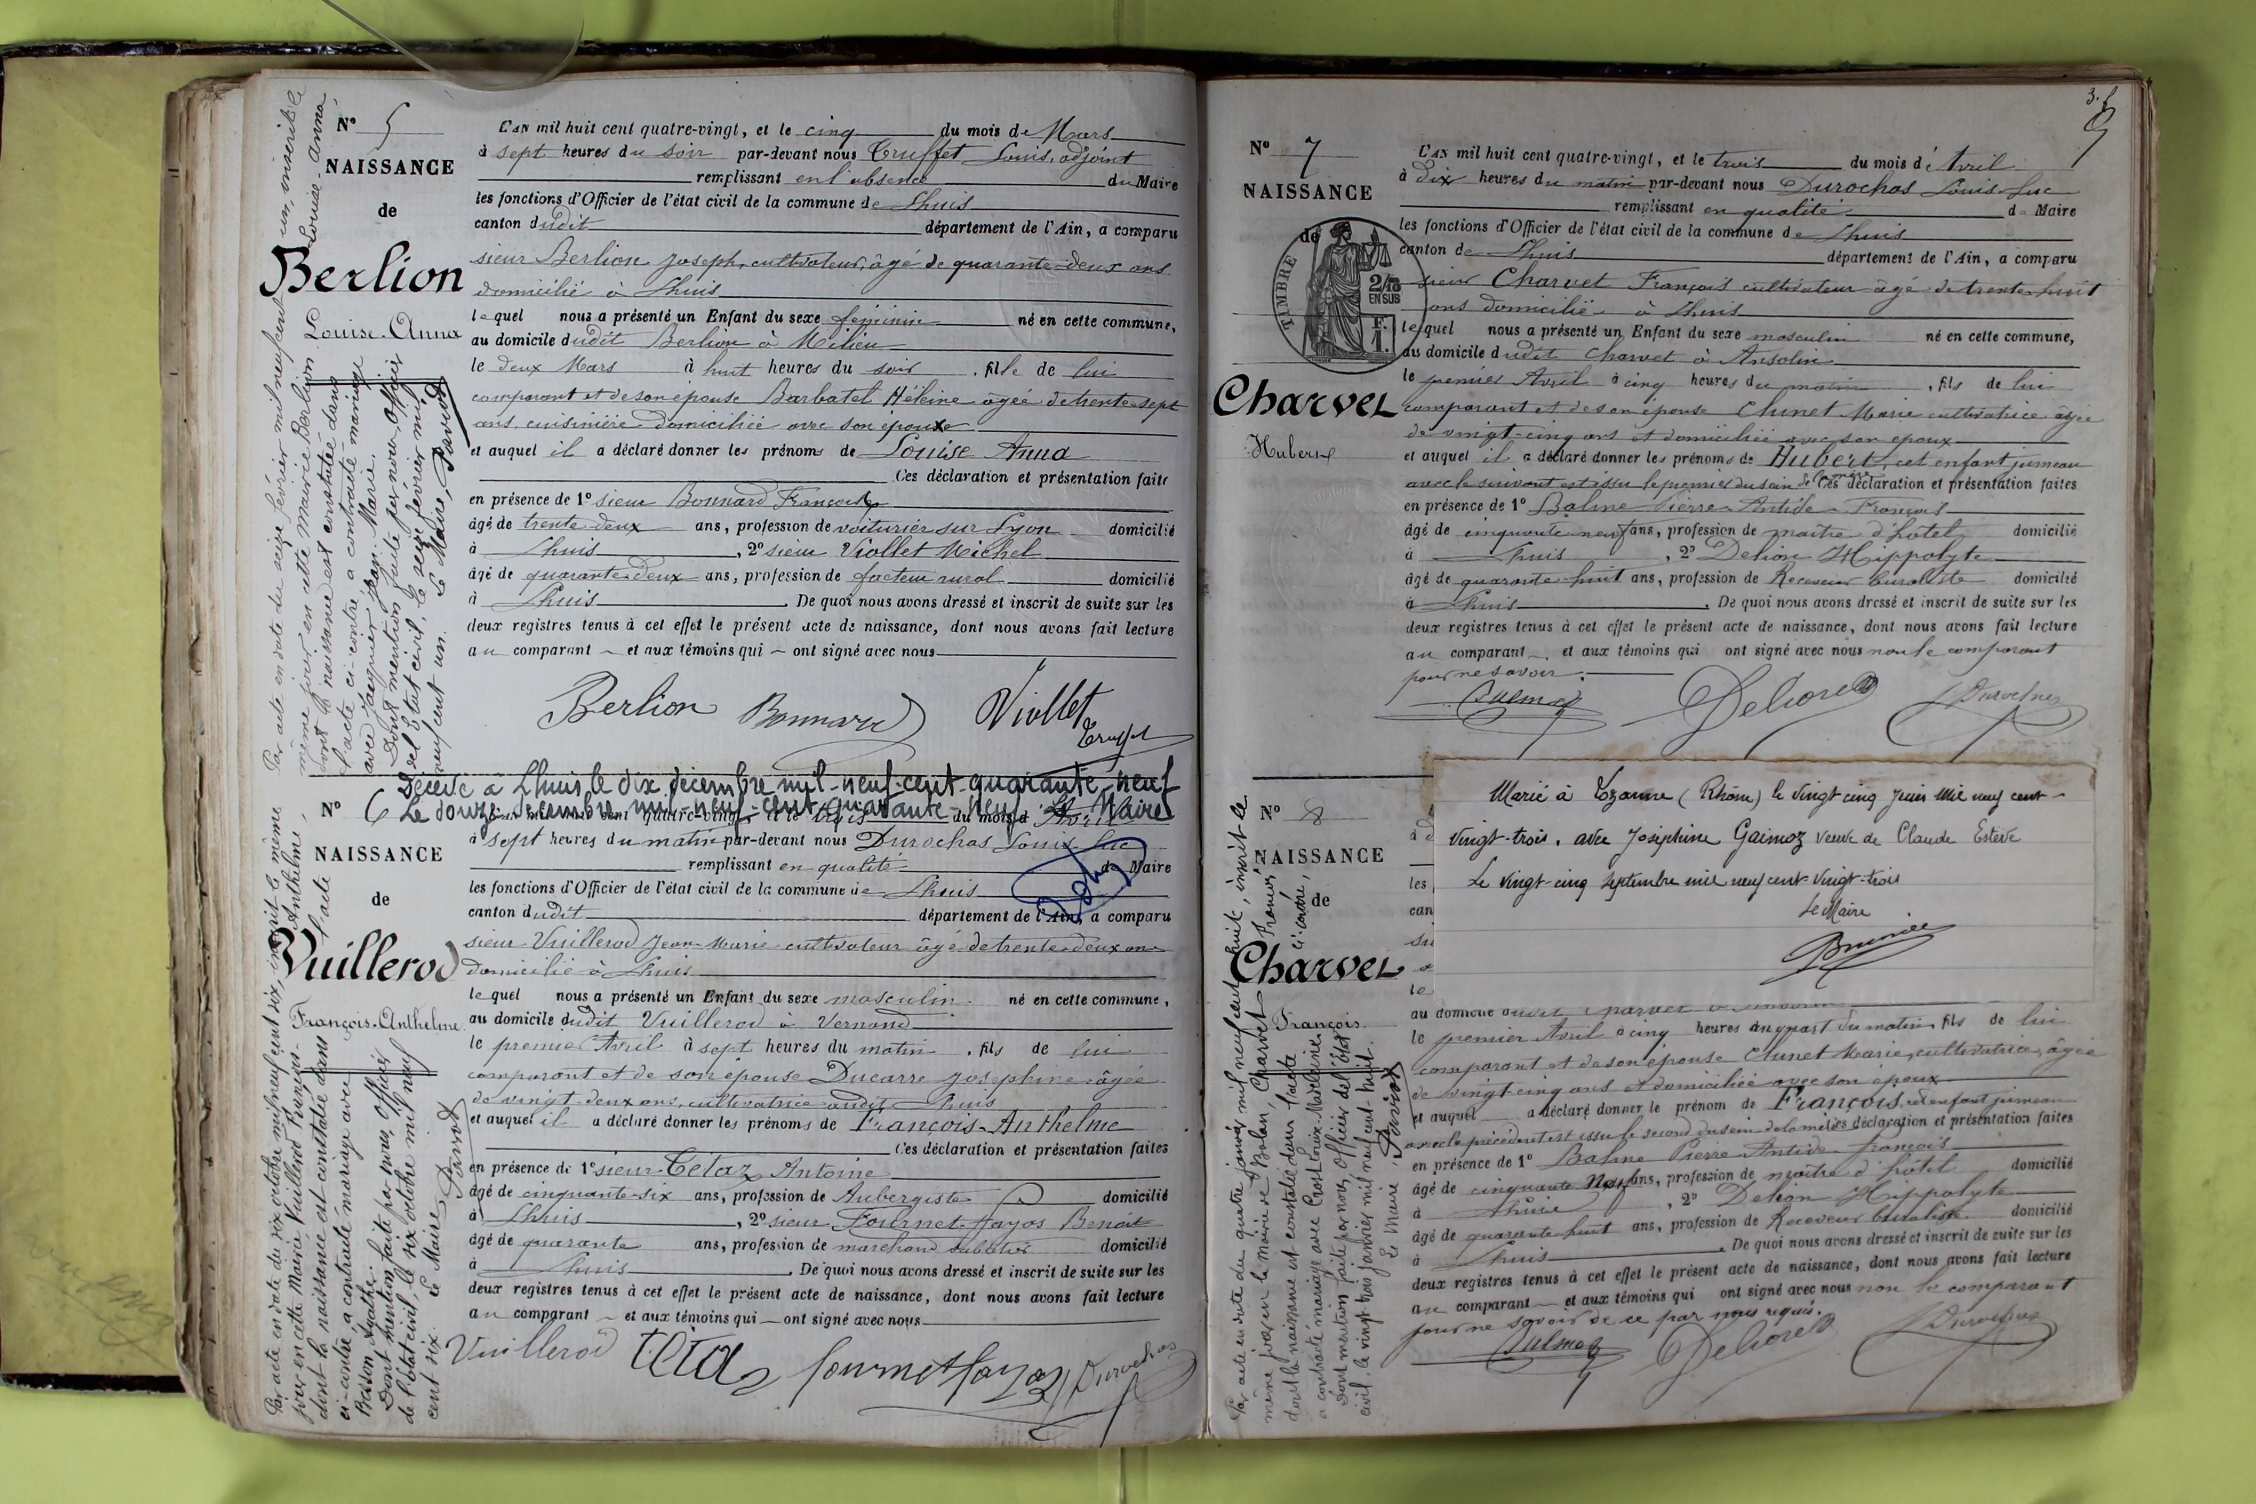 N° 5
NAISSANCE
de
Berlion
Louise-Anna
L'AN mil huit cent quatre-vingt, et le cinq du mois de Mars
à sept heures du soir par-devant nous Truffet Louis, adjoint
remplissant en l'absence du Maire
les fonctions d'Officier de l'état civil de la commune de Lhuis
canton dudit département de l'Ain, a comparu
sieur Berlion Joseph, cultivateur, âgé de quarante-deux ans
domicilié à Lhuis
lequel nous a présenté un Enfant du sexe féminin né en cette commune,
au domicile dudit Berlion à Milieu
le deux Mars à huit heures du soir, fille de lui
comparant et de son épouse Barbatel Hélène âgée de trente-sept
ans, cuisinière domiciliée avec son époux
et auquel il a déclaré donner les prénoms de Louise Anna
Ces déclaration et présentation faites
en présence de 1° sieur Bonnard François
âgé de trente-deux ans, profession de voiturier sur Lyon domicilié
à Lhuis, 2° sieur Viollet Michel
âgé de quarante-deux ans, profession de facteur rural domicilié
à Lhuis. De quoi nous avons dressé et inscrit de suite sur les
deux registres tenus à cet effet le présent acte de naissance, dont nous avons fait lecture
au comparant et aux témoins qui ont signé avec nous
Berlion Bonnard Viollet
Truffet
Par acte en date du seize février mil neuf cent un, inscrit le
même jour en cette mairie Berlion Louise-Anna,
dont la naissance est constatée dans
l'acte ci-contre a contracté mariage
avec Jacquier Jean-Marie.
Dont mention faite par nous, officier
de l'état civil, le seize février mil
neuf cent un. Le Maire, Pavrod
Décédé à Lhuis le dix décembre mil-neuf-cent-quarante-neuf
Le douze décembre mil-neuf-cent-quarante-neuf Le Maire
N° 6
NAISSANCE
de
Vuillerod
François-Anthelme
L'an mil huit cent quatre-vingt, et le trois du mois d'Avril
à sept heures du matin par-devant nous Durochas Louis Luc
remplissant en qualité de Maire
les fonctions d'Officier de l'état civil de la commune de Lhuis
canton dudit département de l'Ain, a comparu
sieur Vuillerod Jean-Marie cultivateur âgé de trente-deux ans
domicilié à Lhuis
lequel nous a présenté un Enfant du sexe masculin né en cette commune,
au domicile dudit Vuillerod à Vernand
le premier Avril à sept heures du matin, fils de lui
comparant et de son épouse Ducarre Joséphine âgée
de vingt-deux ans, cultivatrice audit Lhuis
et auquel il a déclaré donner les prénoms de François-Anthelme
Ces déclaration et présentation faites
en présence de 1° sieur Tétaz Antoine
âgé de cinquante-six ans, profession de Aubergiste domicilié
à Lhuis, 2° sieur Fournet-Fayos Benoit
âgé de quarante ans, profession de marchand domicilié
à Lhuis. De quoi nous avons dressé et inscrit de suite sur les
deux registres tenus à cet effet le présent acte de naissance, dont nous avons fait lecture
au comparant et aux témoins qui ont signé avec nous
Vuillerod Tétaz fournet fayoz Durochas
Par acte en date du six octobre mil neuf cent six, inscrit le même
jour en cette Mairie Vuillerod François-Anthelme,
dont la naissance est constatée dans l'acte
ci-contre a contracté mariage avec
Besson Agathe.
Dont mention faite par nous, Officier
de l'état civil, le six octobre mil neuf
cent six. Le Maire Pavrod
3.
N° 7
NAISSANCE
de
TIMBRE
2/10
EN SUS
F.
1.
Charvet
Hubert
L'AN mil huit cent quatre-vingt, et le trois du mois d'Avril
à dix heures du matin par-devant nous Durochas Louis Luc
remplissant en qualité de Maire
les fonctions d'Officier de l'état civil de la commune de Lhuis
canton de Lhuis département de l'Ain, a comparu
sieur Charvet François cultivateur âgé de trente-huit
ans domicilié à Lhuis
lequel nous a présenté un Enfant du sexe masculin né en cette commune,
au domicile dudit Charvet à Ansolin
le premier Avril à cinq heures du matin, fils de lui
comparant et de son épouse Chunet Marie cultivatrice âgée
de vingt-cinq ans et domiciliée avec son époux
et auquel il a déclaré donner les prénoms de Hubert, cet enfant jumeau
avec le suivant est issu le premier du sein de la mère Ces déclaration et présentation faites
en présence de 1° Balme Pierre-Antide-François
âgé de cinquante neuf ans, profession de maître d'hôtel domicilié
à Lhuis, 2° Dehion Hippolyte
âgé de quarante-huit ans, profession de Receveur buraliste domicilié
à Lhuis. De quoi nous avons dressé et inscrit de suite sur les
deux registres tenus à cet effet le présent acte de naissance, dont nous avons fait lecture
au comparant et aux témoins qui ont signé avec nous non le comparant
pour ne savoir.
Balme Durochas
Marié à Lozanne (Rhône) le vingt cinq juin mil neuf cent-
vingt-trois, avec Joséphine Gaimoz veuve de Claude Esteve
Le vingt-cinq septembre mil neuf cent vingt-trois
Le Maire
N° 8
NAISSANCE
de
Charvet
François
à d
les
can
le
au domicile dudit Charvet à Ansolin
le premier Avril à cinq heures du matin, fils de lui
comparant et de son épouse Chunet Marie, cultivatrice, âgée
de vingt-cinq ans et domiciliée avec son époux
et auquel a déclaré donner le prénom de François, cet enfant jumeau
avec le précédent est issu le second du sein de la mère Ces déclaration et présentation faites
en présence de 1° Balme Pierre-Antide-François
âgé de cinquante neuf ans, profession de maître d'hôtel domicilié
à Lhuis, 2° Dehion Hippolyte
âgé de quarante-huit ans, profession de Receveur buraliste domicilié
à Lhuis. De quoi nous avons dressé et inscrit de suite sur les
deux registres tenus à cet effet le présent acte de naissance, dont nous avons fait lecture
au comparant et aux témoins qui ont signé avec nous non le comparant
pour ne savoir de ce par nous requis.
Balme Durochas
Par acte en date du quatre janvier mil neuf cent huit, inscrit le
même jour en la Mairie de Bolan, Charvet François
dont la naissance est constatée dans l'acte ci-contre,
a contracté mariage avec Crost Louise-Madeleine
Dont mention faite par nous, Officier de l'état
civil, le vingt-trois janvier mil neuf cent-huit.
Le Maire, Pavrod